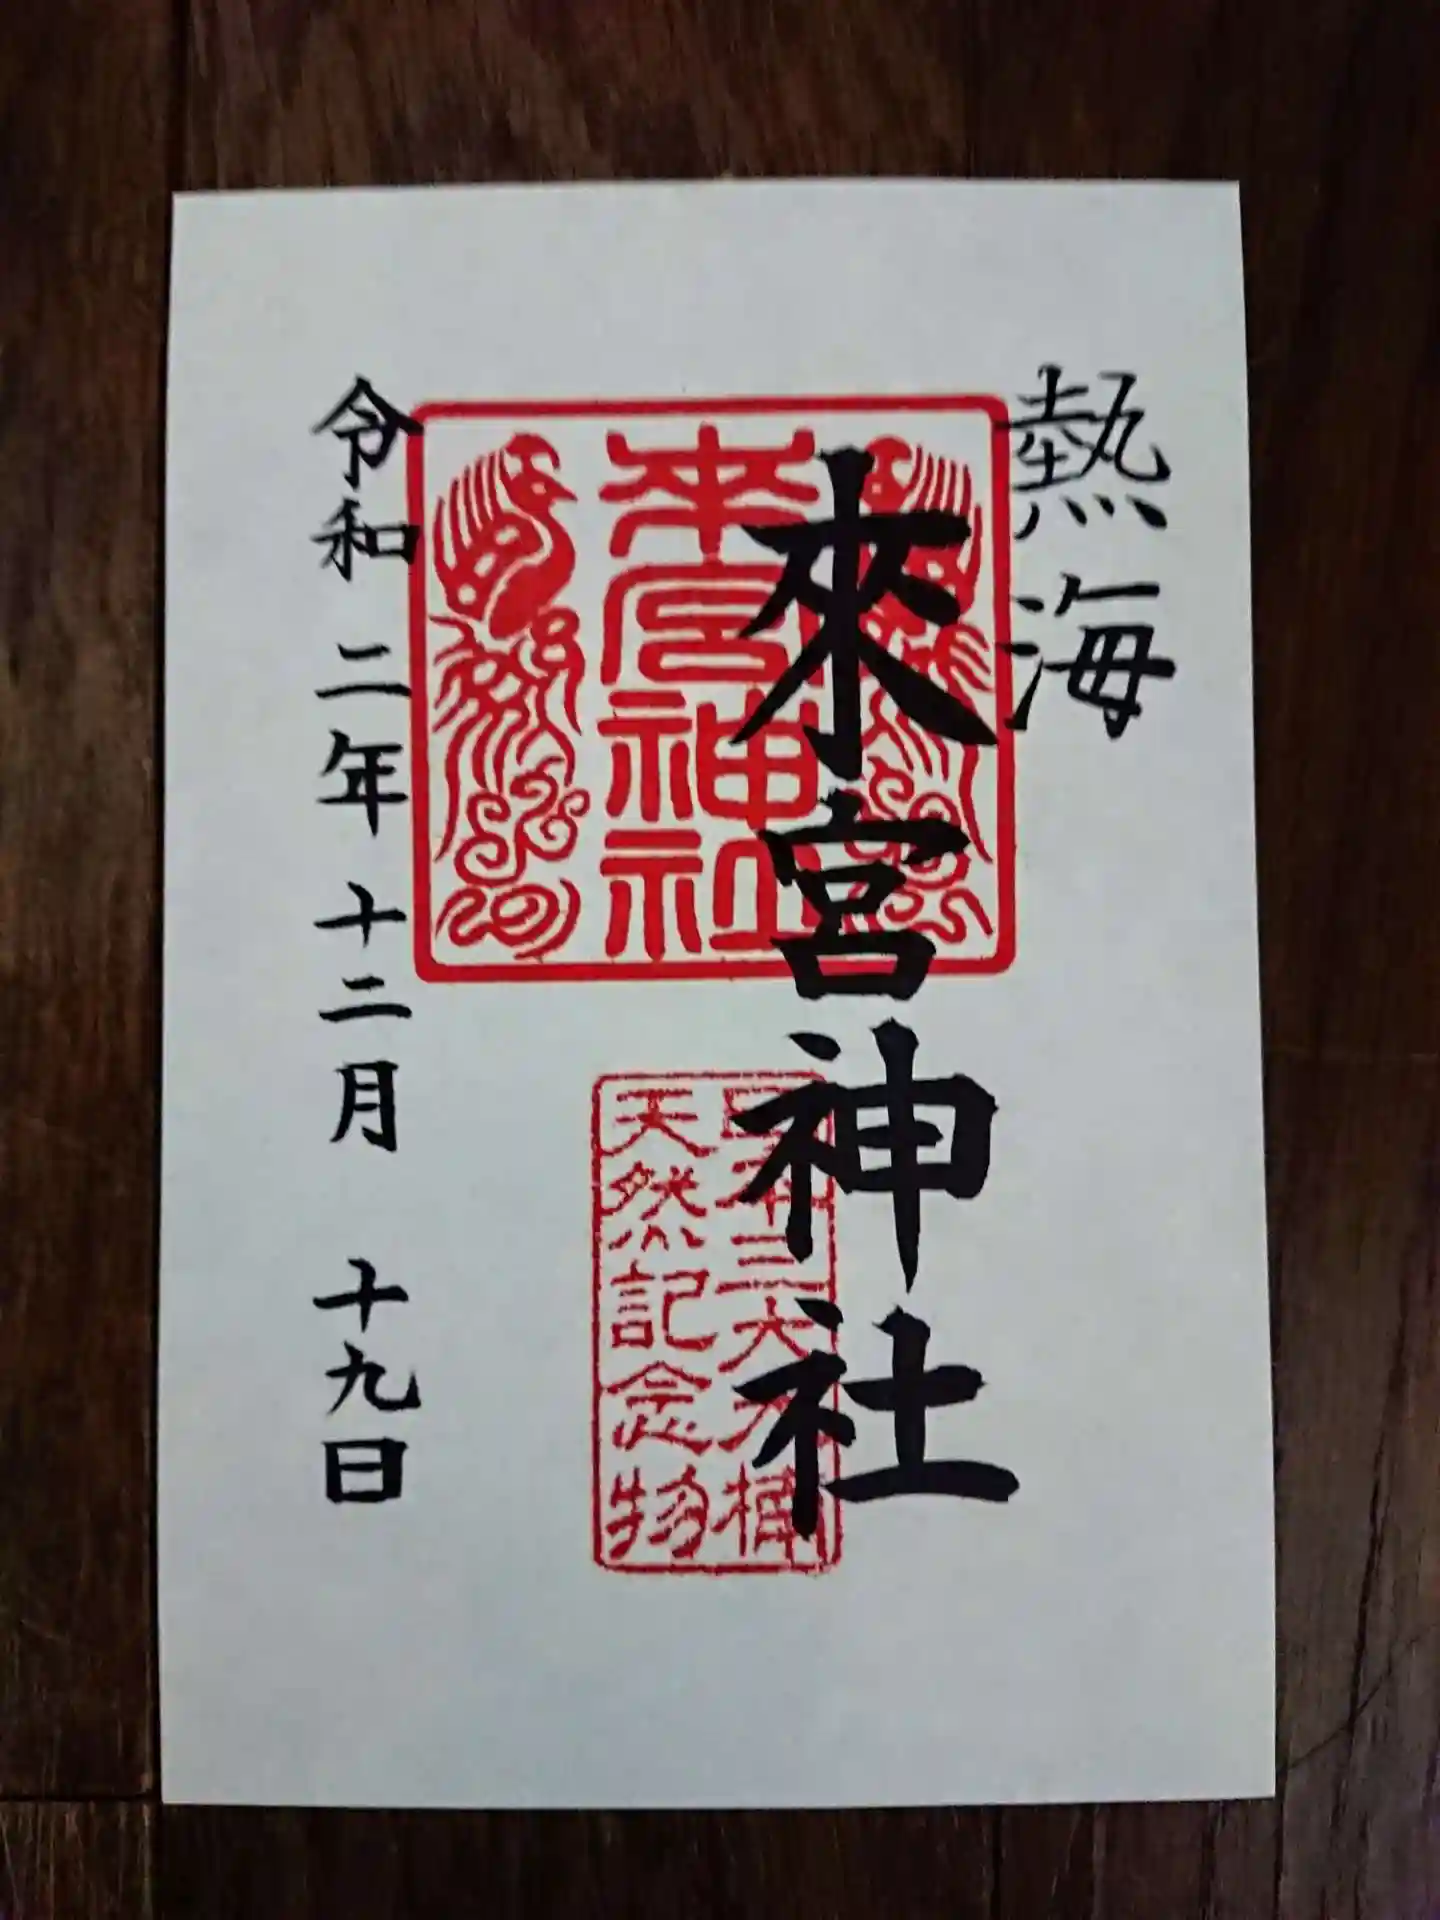 熱海
來宮神社
來宮神社
日本三大大楠
天然記念物
令和二年十二月十九日